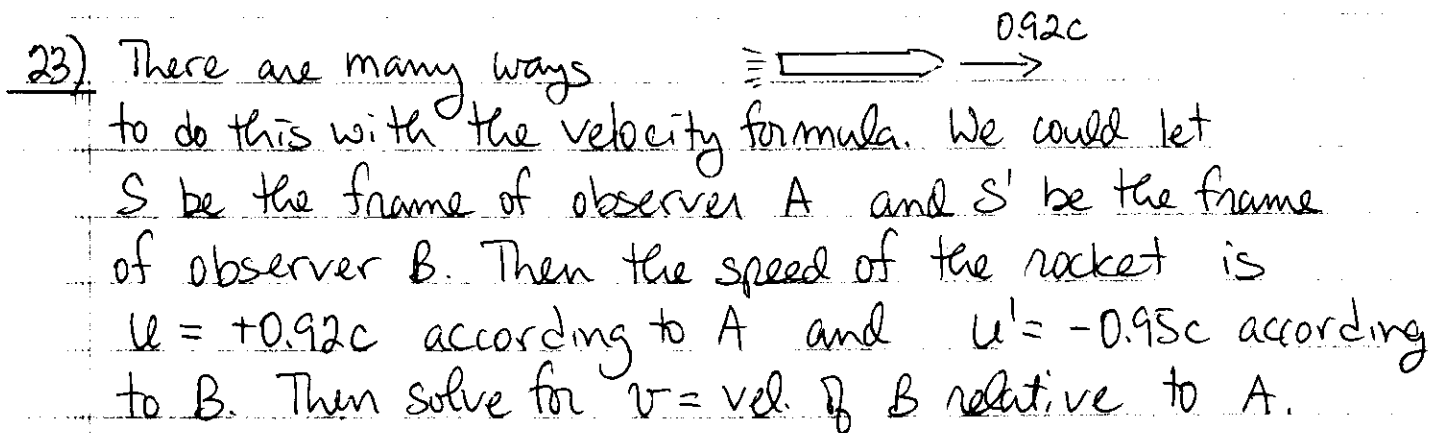 0.92c
23) There are many ways
to do this with the velocity formula. We could let
S be the frame of observer A and S' be the frame
of observer B. Then the speed of the rocket is
u = +0.92c according to A and u' = -0.95c according
to B. Then solve for v = vel. of B relative to A.